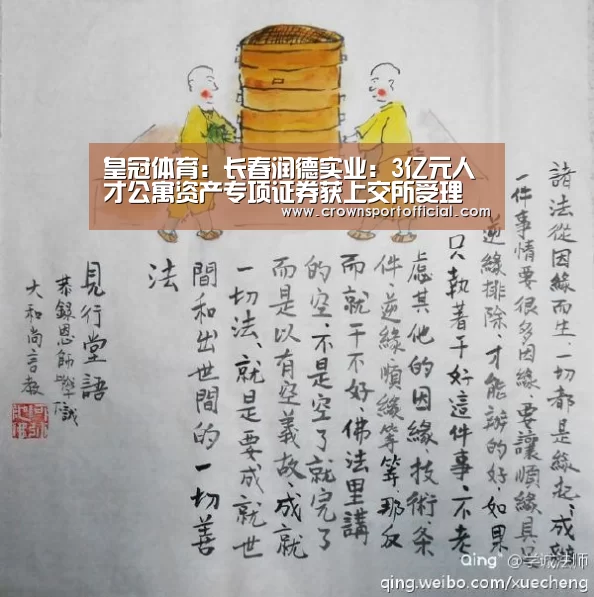 皇冠体育：长春润德实业：3亿元人
才公寓资产专项证券获上交所受理
www.crownsportofficial.com
諸法從因緣而生、一切都是緣起、成辦
一件事情要很多因緣、要讓順緣具足
逆緣排除、才能辦的好、如果
只執著干好這件事、不考
慮其他的因緣、技術条
件、逆緣順緣等等、那反
而就干不好、佛法里講
的空、不是空了就完了
而是以有空義故、成就
一切法、就是要成就世
間和出世間的一切善
法
見行堂語
恭錄恩師學誠
大和尚言教
Qing @学诚法师
qing.weibo.com/xuecheng